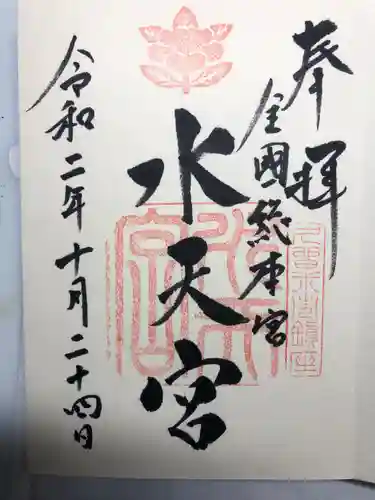 奉拝
全国総本宮
水天宮
令和二年十月二十四日